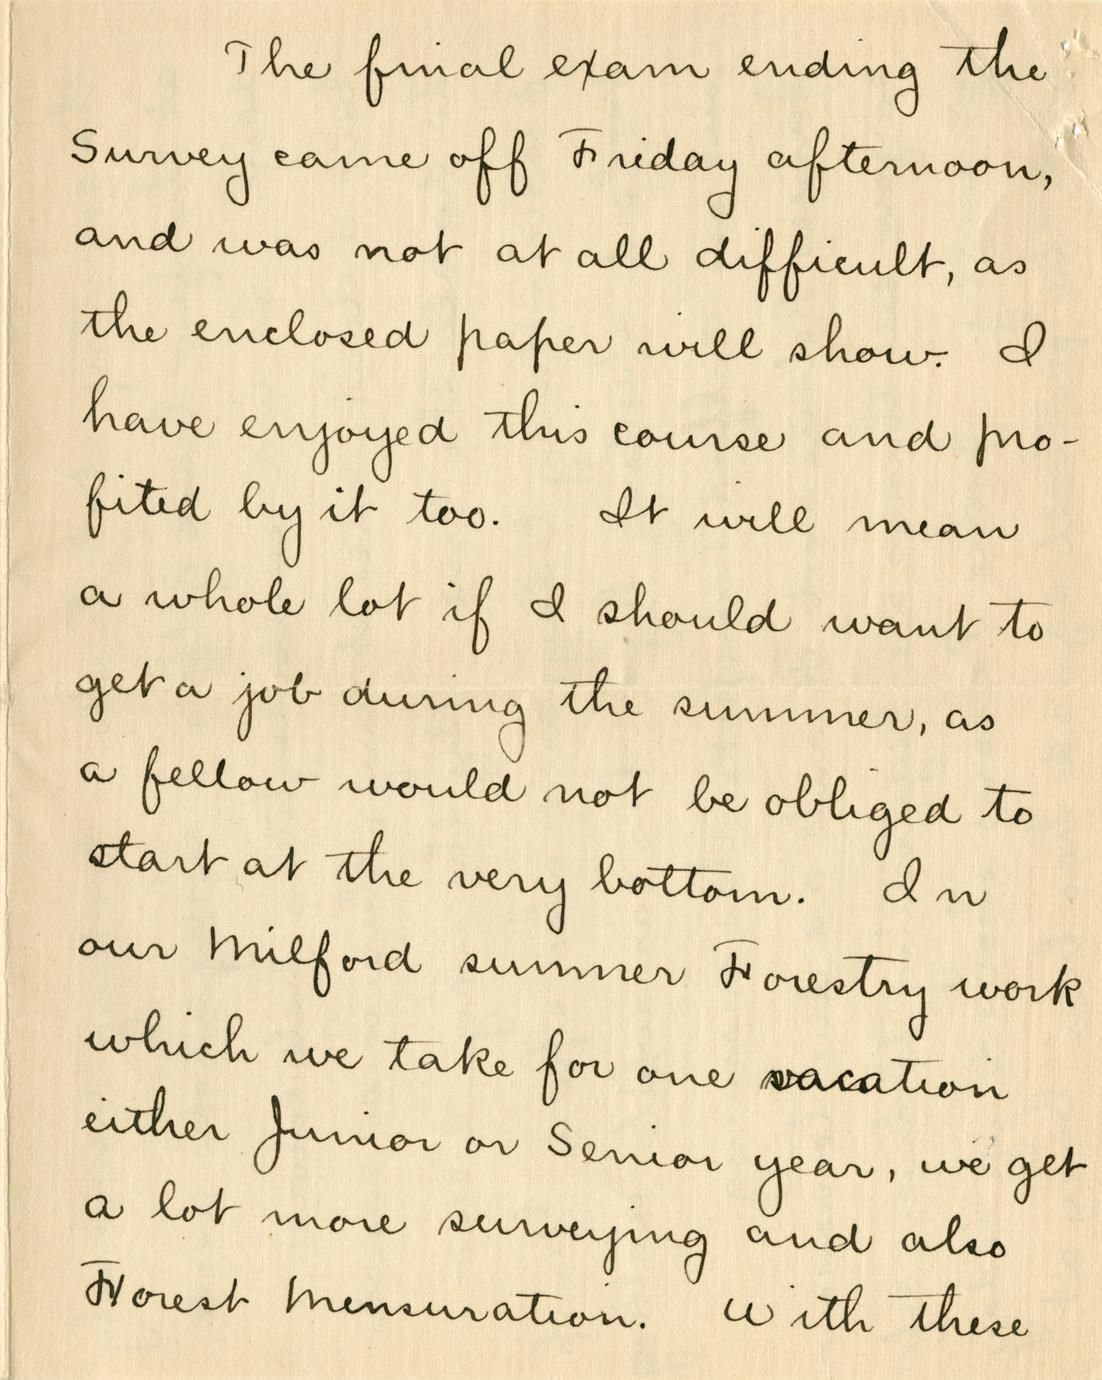 The final exam ending the
Survey came off Friday afternoon,
and was not at all difficult, as
the enclosed paper will show. I
have enjoyed this course and pro-
fited by it too. It will mean
a whole lot if I should want to
get a job during the summer, as
a fellow would not be obliged to
start at the very bottom. In
our Milford summer Forestry work
which we take for one vacation
either Junior or Senior year, we get
a lot more surveying and also
Forest Mensuration. With these